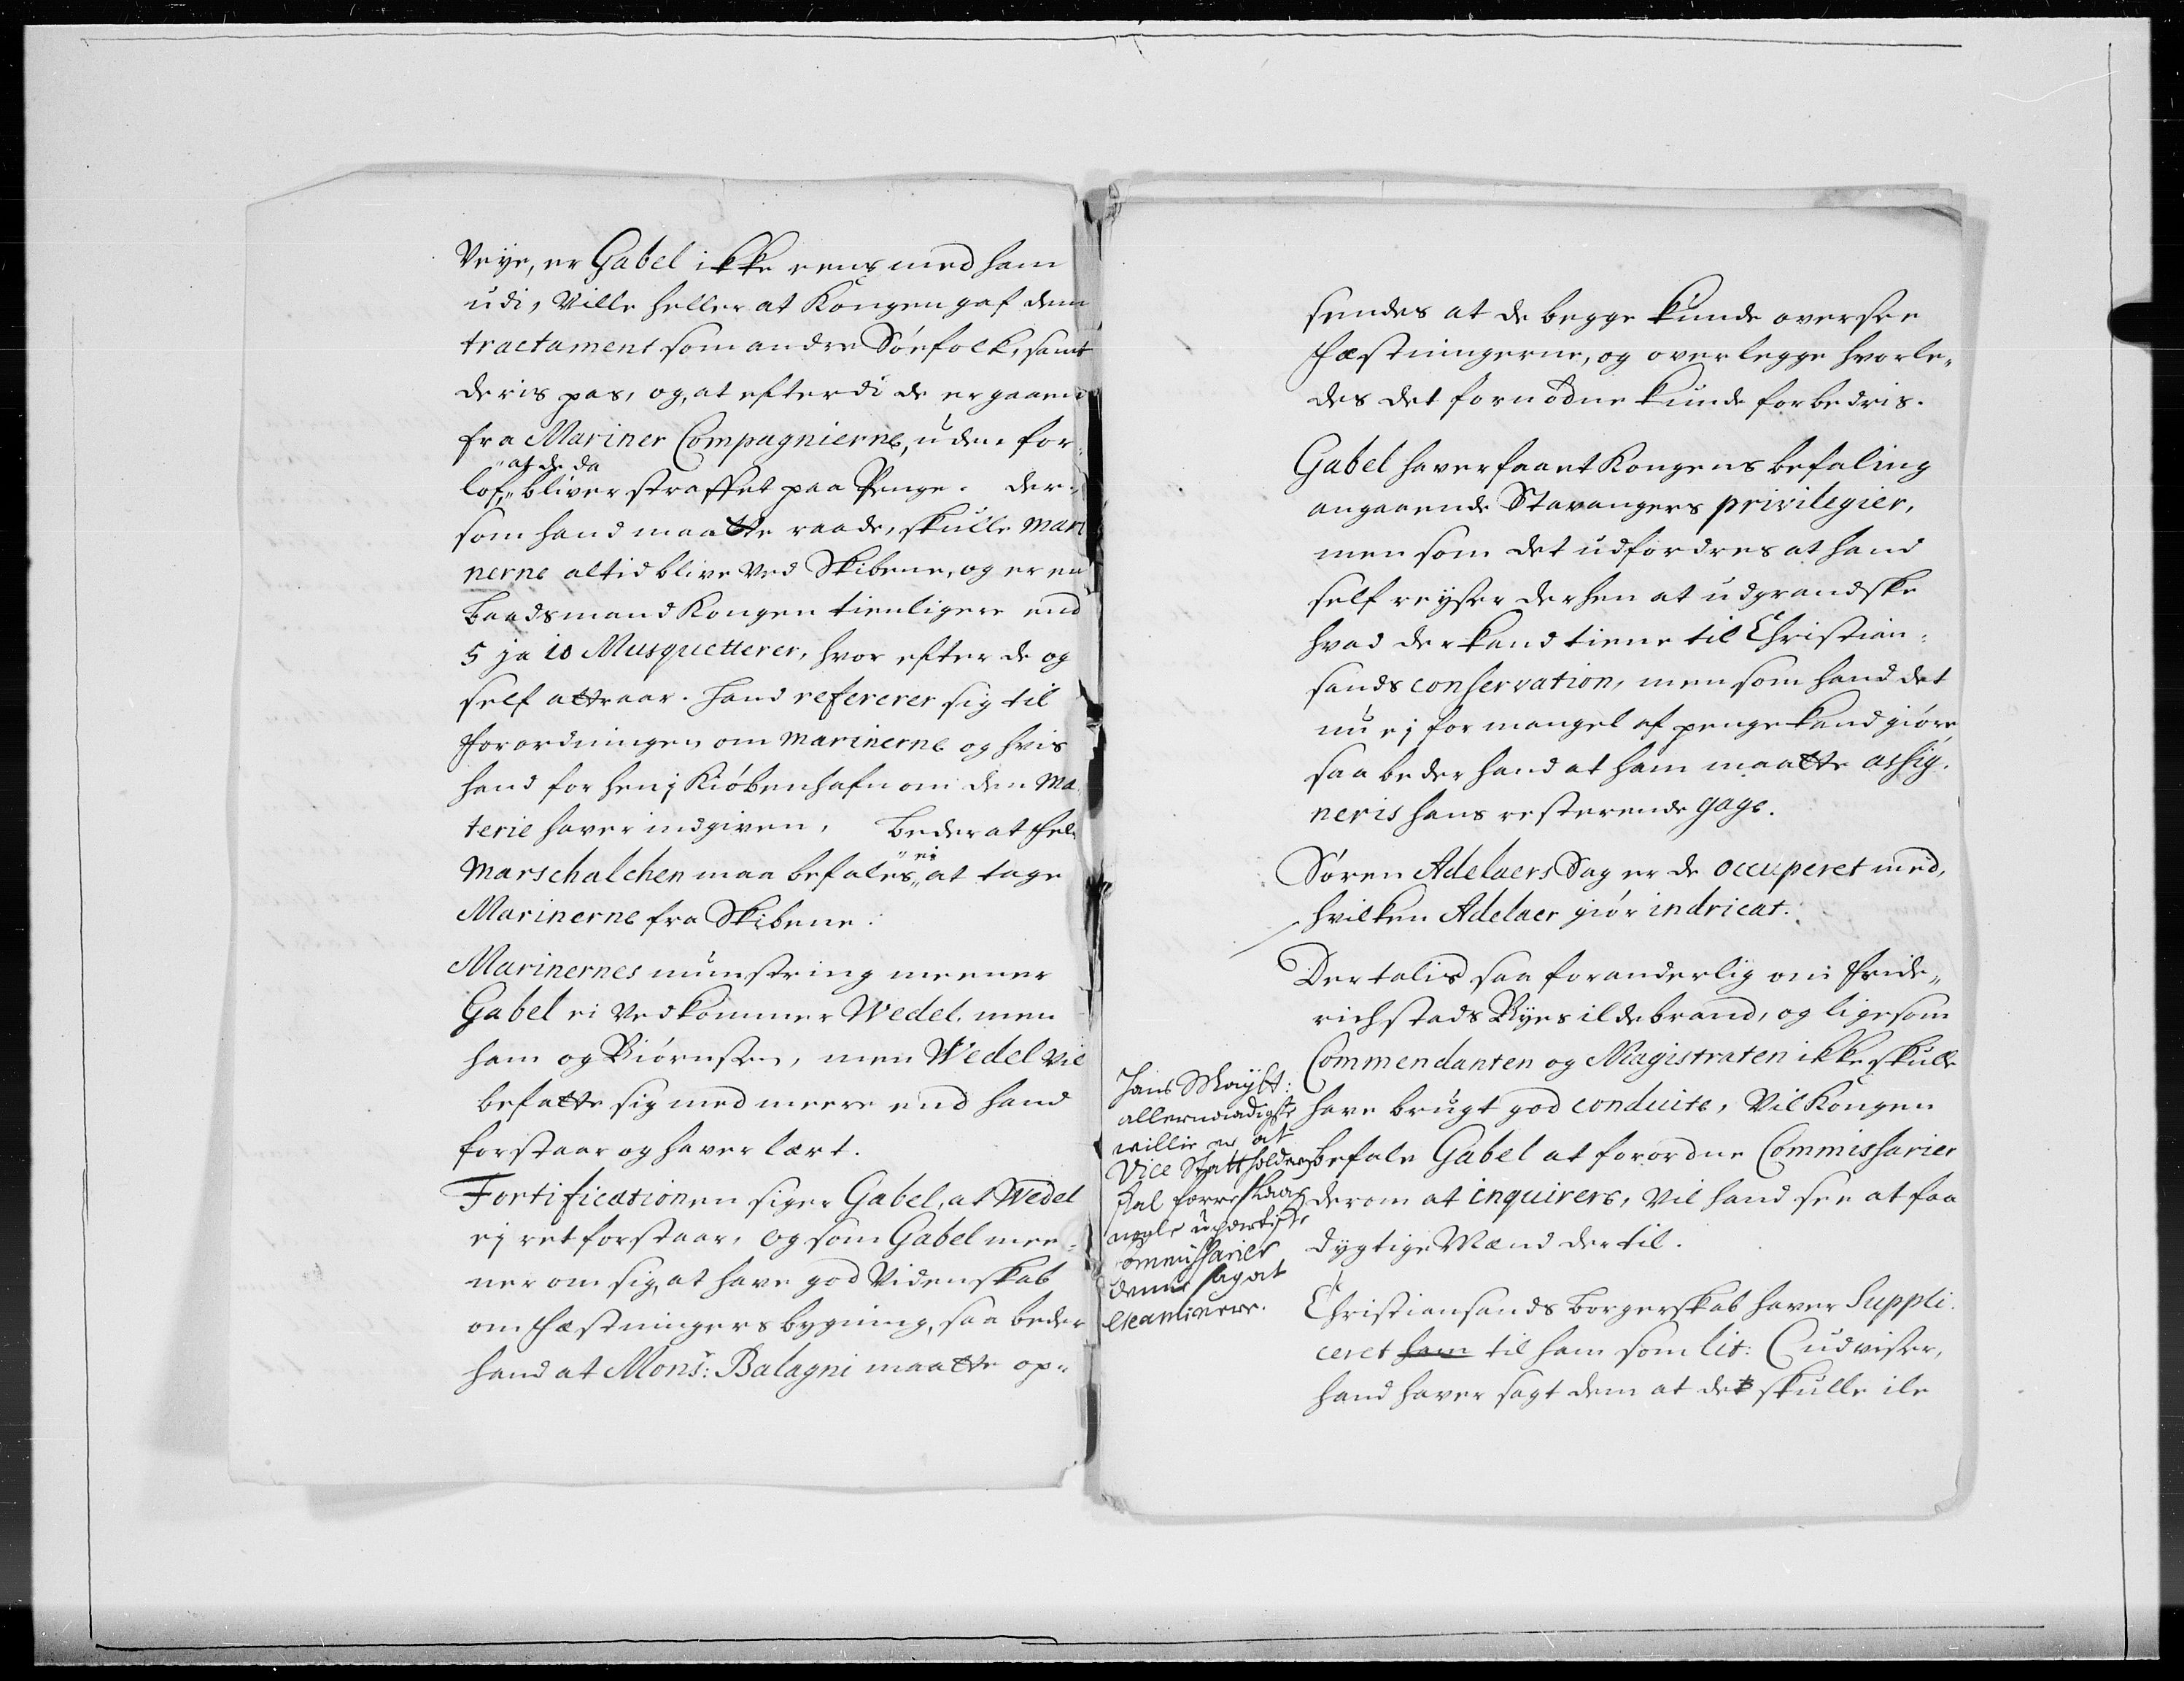 Veye, er Gabel ikke eens med ham
udi, Ville heller at Kongen gaf dem
tractament som andre Söefolk, samt
deris pas, og, at efterdi de er gaaen
fra Mariner Compagnierne, uden for-
"at de da
lof," bliver straffet paa Penge. Der-
som hand maatte raade, skulle Mari
nerne altid blive ved Skibene, og er en
Baadsmand Kongen tienligere end
5 ja 10 Musquetterer, hvor efter de og
self attraar. Hand refererer sig til
Forordningen om Marinerne og hvis
hand for hen i Kiöbenhafn om den Ma
terie haver indgiven, Beder at Felt
" ei
Marschalchen maa befales" at tage
Marinerne fra Skibene.
Marinernes munstring meener
Gabel ei vedkommer Wedel. men
ham og Biörnsen, men Wedel vil
befatte sig med meere end hand
forstaar og haver lært.
Fortificationen siger Gabel, at Wedel
ej ret forstaar, og som Gabel mee-
ner om sig, at have god Videnskab
om Fæstningers bygning, saa beder
hand at Monsr: Balagni maatte op-
sendes at de begge kunde oversee
Fæstningerne, og overlegge hvorle-
des det fornödne kunde forbedris.
Gabel haver faaet Kongens befaling
angaaende Stavangers privilegier,
men som det udfordres at hand
self reyser derhen at udgrandske
hvad der kand tiene til Christian-
sands conservation, men som hand det
nu ej for mangel af penge kand giöre,
saa beder hand at ham maatte assig-
neris hans resterende gage.
Sören Adelaers Sag er de occuperet med,
hvilken Adelaer giör indricat.
Der talis saa foranderlig om Fride-
richstads Byes ildebrand, og ligesom
Commendanten og Magistraten ikke skulle
have brugt god conduite, Vil Kongen
befale Gabel at forordne Commissarier
derom at inquirere, vil hand see at faa
dygtige Mænd dertil.
Hans Mayst:
allernaadigste
willie er at
Vice Statholderen
skal forreslaa
nogle upartiske
Commissarier
denne sag at
examinere.
Christiansands Borgerskab haver Suppli-
ceret ham til ham som lit: C udviser,
hand haver sagt dem at det skulle ile